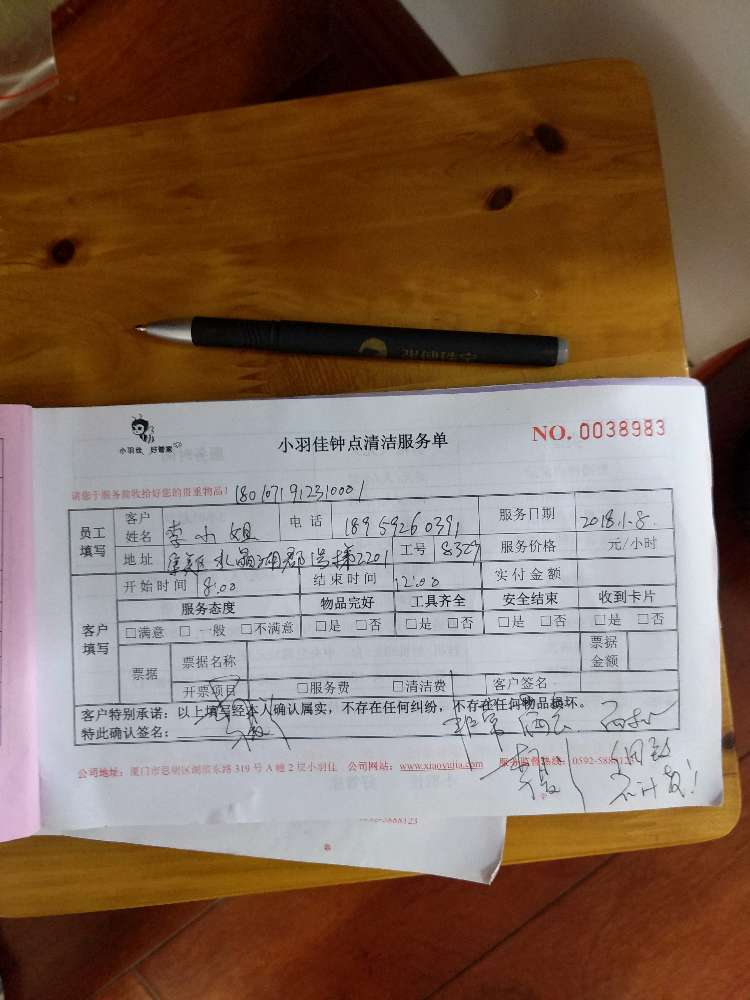 张健珠宝
小羽佳 好管家
小羽佳钟点清洁服务单
NO. 0038983
请您于服务前收拾好您的贵重物品！ 1801071912310001
员工填写 客户姓名 李小姐 电话 18959260391 服务日期 2018.1.8.
地址 水晶湖郡 2201 工号 8329 服务价格 元/小时
客户填写 开始时间 8:00 结束时间 12:00 实付金额
服务态度 物品完好 工具齐全 安全结束 收到卡片
□满意 □一般 □不满意 □是 □否 □是 □否 □是 □否 □是 □否
票据 票据名称 票据金额
开票项目 □服务费 □清洁费 客户签名
客户特别承诺：以上填写经本人确认属实，不存在任何纠纷，不存在任何物品损坏。
特此确认签名：
公司地址：厦门市思明区湖滨东路 319 号 A 幢 2 层小羽佳 公司网站：www.xiaoyujia.com 服务监督热线：0592-5888123